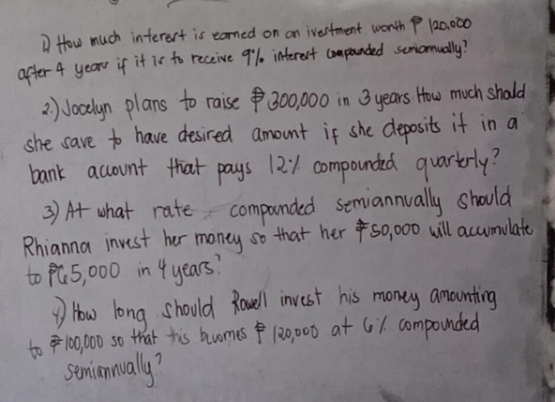 1) How much interest is earned on an ivestment worth ₱ 120,000
after 4 years if it is to receive 9% interest compounded semiannually?
2.) Jocelyn plans to raise ₱300,000 in 3 years How much should
she save to have desired amount if she deposits it in a
bank account that pays 12% compounded quarterly?
3) At what rate compounded semiannually should
Rhianna invest her money so that her ₱50,000 will accumulate
to ₱65,000 in 4 years?
4) How long should Rowell invest his money amounting
to ₱100,000 so that this becomes ₱ 120,000 at 6% compounded
semiannually?